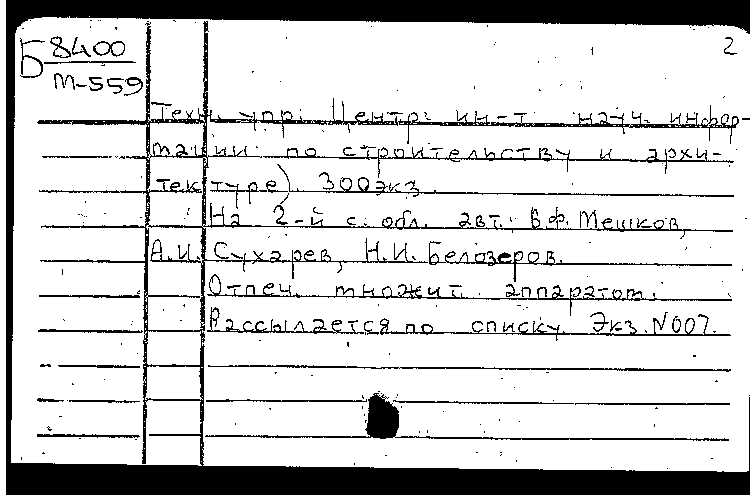 Б 8400
М-559
2
Техн. упр. Центр. ин-т науч. инфор-
мации по строительству и архи-
тектуре). 300 экз.
На 2-й с. обл. авт.: В.Ф. Мешков,
А.И. Сухарев, Н.И. Белозеров.
Отпеч. множит. аппаратом.
Рассылается по списку. Экз. N007.